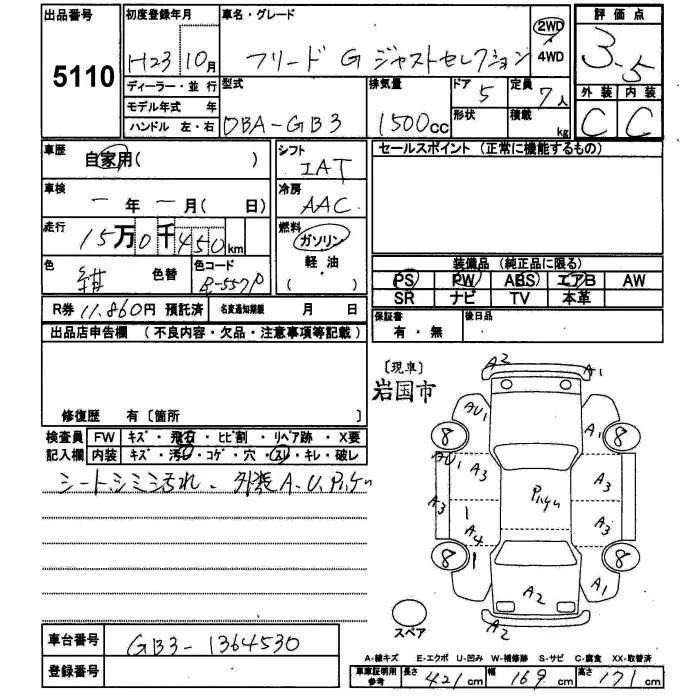 出品番号
5110
初度登録年月
H23 10月
車名・グレード
フリード G ジャストセレクション
2WD
4WD
評価点
3.5
外装 内装
C C
ディーラー・並行
モデル年式 年
ハンドル 左・右
型式
DBA-GB3
排気量
1500cc
ドア
5
形状
定員
7人
積載
kg
車歴
自家用( )
車検
ー年ー月( 日)
走行
15万0千450km
色
紺 色替
色コード
B-557P
シフト
IAT
冷房
AAC
燃料
ガソリン
軽・油
( )
セールスポイント (正常に機能するもの)
装備品 (純正品に限る)
PS PW ABS エアB AW
SR ナビ TV 本革
保証書
有・無
後日品
R券 11.860円 預託済
名変通知期限 月 日
出品店申告欄 (不良内容・欠品・注意事項等記載)
修復歴 有〔箇所 〕
検査員
記入欄
FW キズ・飛石・ヒビ割・リペア跡・X要
内装 キズ・汚レ・コゲ・穴・スレ・キレ・破レ
シート.シミ.シミ汚れ. 外装A.U.Pハケン
〔現車〕
岩国市
A2 A1
AU1 A1
8 8
AU1 A3 A3
A3 Pハケン A3
A4 A3
8 8
A2 A1
A2
スペア
車台番号
GB3-1364530
登録番号
A-線キズ E-エクボ U-凹み W-補修跡 S-サビ C-腐食 XX-取替済
車庫証明用
参考
長さ 421cm 幅 169cm 高さ 171cm